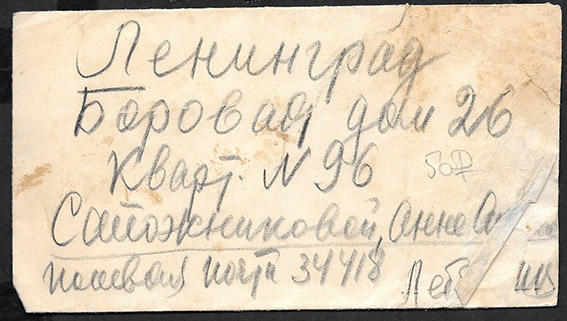 Ленинград
Боровая, дом 26
Кварт. N 96
Сапожниковой, Анне
полевая почта 34418